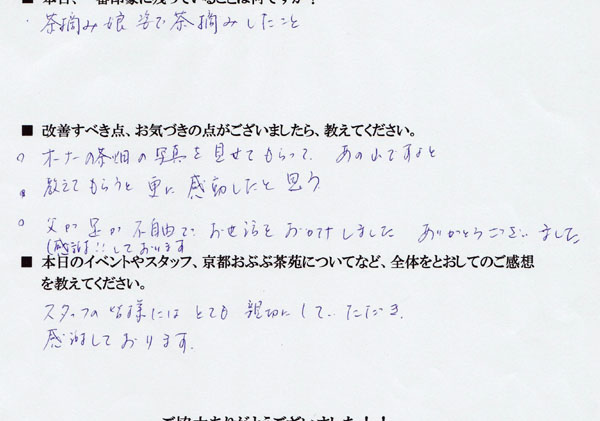 ■ 本日、一番印象に残っていることは何ですか？
・茶摘み娘姿で茶摘みしたこと
■ 改善すべき点、お気づきの点がございましたら、教えてください。
○ オーナーの茶畑の写真を見せてもらって、あの山ですよと
教えてもらうと更に感動したと思う
○ 父が足が不自由で、お世話をおかけしました ありがとうございました
(感謝!!しております
■ 本日のイベントやスタッフ、京都おぶぶ茶苑についてなど、全体をとおしてのご感想
を教えてください。
スタッフの皆様にはとても親切にしていただき、
感謝しております。
ご協力ありがとうございました！！